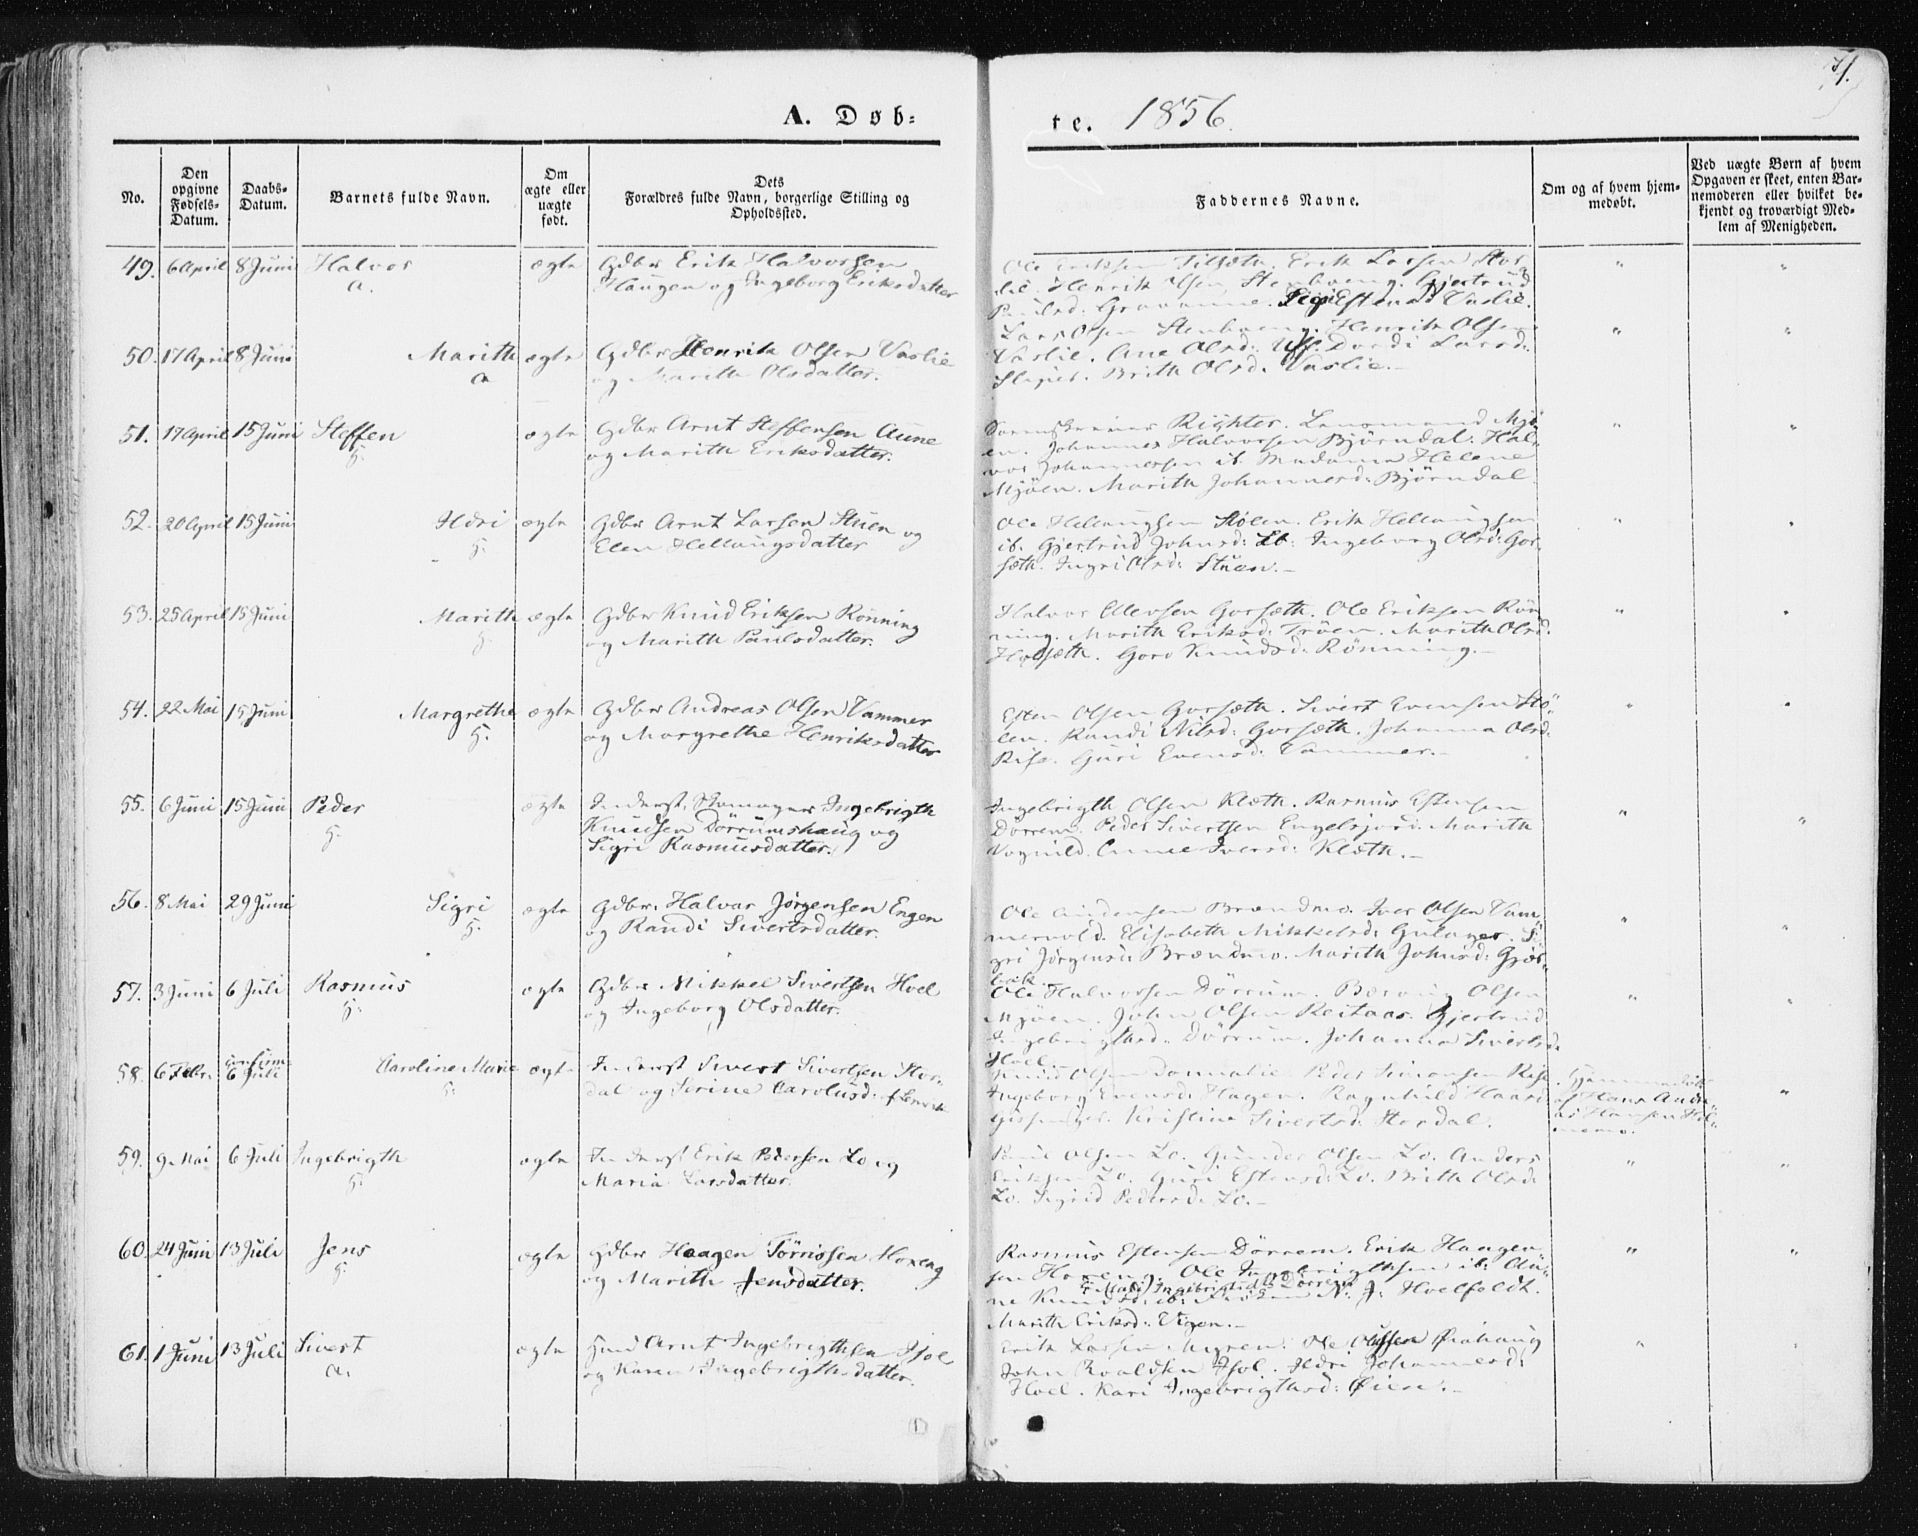 71.
A. Døb=
te. 1856.
No.
Den opgivne Fødsels-Datum.
Daabs-Datum.
Barnets fulde Navn.
Om ægte eller uægte født.
Dets
Forældres fulde Navn, borgerlige Stilling og
Opholdssted.
Faddernes Navne.
Om og af hvem hjem-
medøbt.
Ved uægte Børn af hvem
Opgaven er skeet, enten Bar-
nemoderen eller hvilket be-
kjendt og troværdigt Med-
lem af Menigheden.
49. 6 April 8 Juni Halvor ægte Gdbr Erik Halvorsen
a. Haugen og Ingeborg Eriksdatter
Ole Eriksen Erik Larsen Stor
lie. Henrik Olsen Stenboeng. Gjertrud
Paulsd: Estensd Vaslie.
50. 17 April 8 Juni Marith ægte Gdbr Henrik Olsen Vaslie
a og Marith Olsdatter.
Lars Olsen Stenboeng. Henrik Olsen
Vaslie. Ane Olsd: Dordi Larsd:
Brith Olsd: Vaslie.
51. 17 April 15 Juni Steffen ægte Gdbr Arnt Steffensen Aune
h. og Marith Eriksdatter.
Sorenskriver Richter. Lensmand Mjö-
en. Johannes Halvorsen Björndal. Hal-
vor Johannessen ib. Madame Helene
Mjöen. Marith Johannesd: Björndal
52. 20 April 15 Juni Ildri ægte Gdbr Arnt Larsen Stuen og
h. Elen Hellaugsdatter
Ole Hellaugsen Stölen. Erik Hellaugsen
ib. Gjertrud Johnsd: ib: Ingeborg Olsd: Gor-
sæth. Ingri Olsd: Stuen.
53. 25 April 15 Juni Marith ægte Gdbr Knud Eriksen Rönning
h. og Marith Paulsdatter.
Halvor Ellevsen Gorsæth. Ole Eriksen Rön
ning. Marith Eriksd: Tröen. Marith Olsd:
Gorsæth. Goro Knudsd: Rönning.
54. 22 Mai 15 Juni Margrethe ægte Gdbr Andreas Olsen Vammer
h. og Margrethe Henriksdatter
Esten Olsen Gorsæth. Sivert Evensen Stö-
len. Randi Nilsd: Gorsæth. Johanna Olsd:
Rise. Guri Evensd: Vammer.
55. 6 Juni 15 Juni Peder ægte Inderst, Skomager Ingebrigth
h. Knudsen Dörrumshaug og
Sigri Rasmusdatter.
Ingebrigth Olsen Klæth. Rasmus Estensen
Dörrem. Peder Sivertsen Engelsjord. Marith
Vognild. Anne Iversd: Klæth.
56. 8 Mai 29 Juni Sigri ægte Gdbr. Halvor Jörgensen Engen
h. og Randi Sivertsdatter.
Ole Brændmo. Iver Olsen Vam-
mervold. Elisabeth Mikkelsd: Gulager. Si
gri Jörgensd: Brændmo. Marith Johnsd: Gjöe-
57. 3 Juni 6 Juli Rasmus ægte Gdbr Mikkel Sivertsen Hoel
h. og Ingeborg Olsdatter.
Ole Halvorsen Dörrum. Olsen
Mjöen. John Olsen Reitaas. Gjertrud
Ingebrigthsd. Dörrum. Johanna Sivertsd:
Hoel.
58. 6 Febr. 6 Juli Caroline Marie ægte Inderst Sivert Sivertsen Stor-
h. dal og Serine Carolusd:
Knud Olsen Donnalie. Peder Simonsen Rise.
Ingeborg Evensd: Hagen. Ragnhild
Kristine Sivertsd: Stordal.
Hjemmedöbt
af Hans Andre-
as Hansen
59. 9 Mai 6 Juli Ingebrigth ægte Inderst Erik Pedersen Lo og
h. Maria Larsdatter.
Olsen Lo. Gunder Olsen Lo. Anders
Eriksen Lo. Guri Estensd: Lo. Brith Olsd:
Lo. Sigrid Pedersd: Lo.
60. 24 Juni 13 Juli Jens ægte Gdbr Haagen Törrissen Hoxeng
h. og Marith Jensdatter.
Rasmus Estensen Dörrem. Erik Haagen-
sen Hoxeng. Ole Ingebrigthsen ib: An-
ne Knudsd: ib: Fröken N: J: Hoelfeldt.
Marith Eriksd: Vigen.
61. 1 Juni 13 Juli Sivert ægte Arnt Ingebrigthsen
a. og Karen Ingebrigthsdatter.
Erik Larsen Myren. Ole Olssen
John Roaldsen Ildri Johannesd:
Hoel. Kari Ingebrigthsd: Öien.